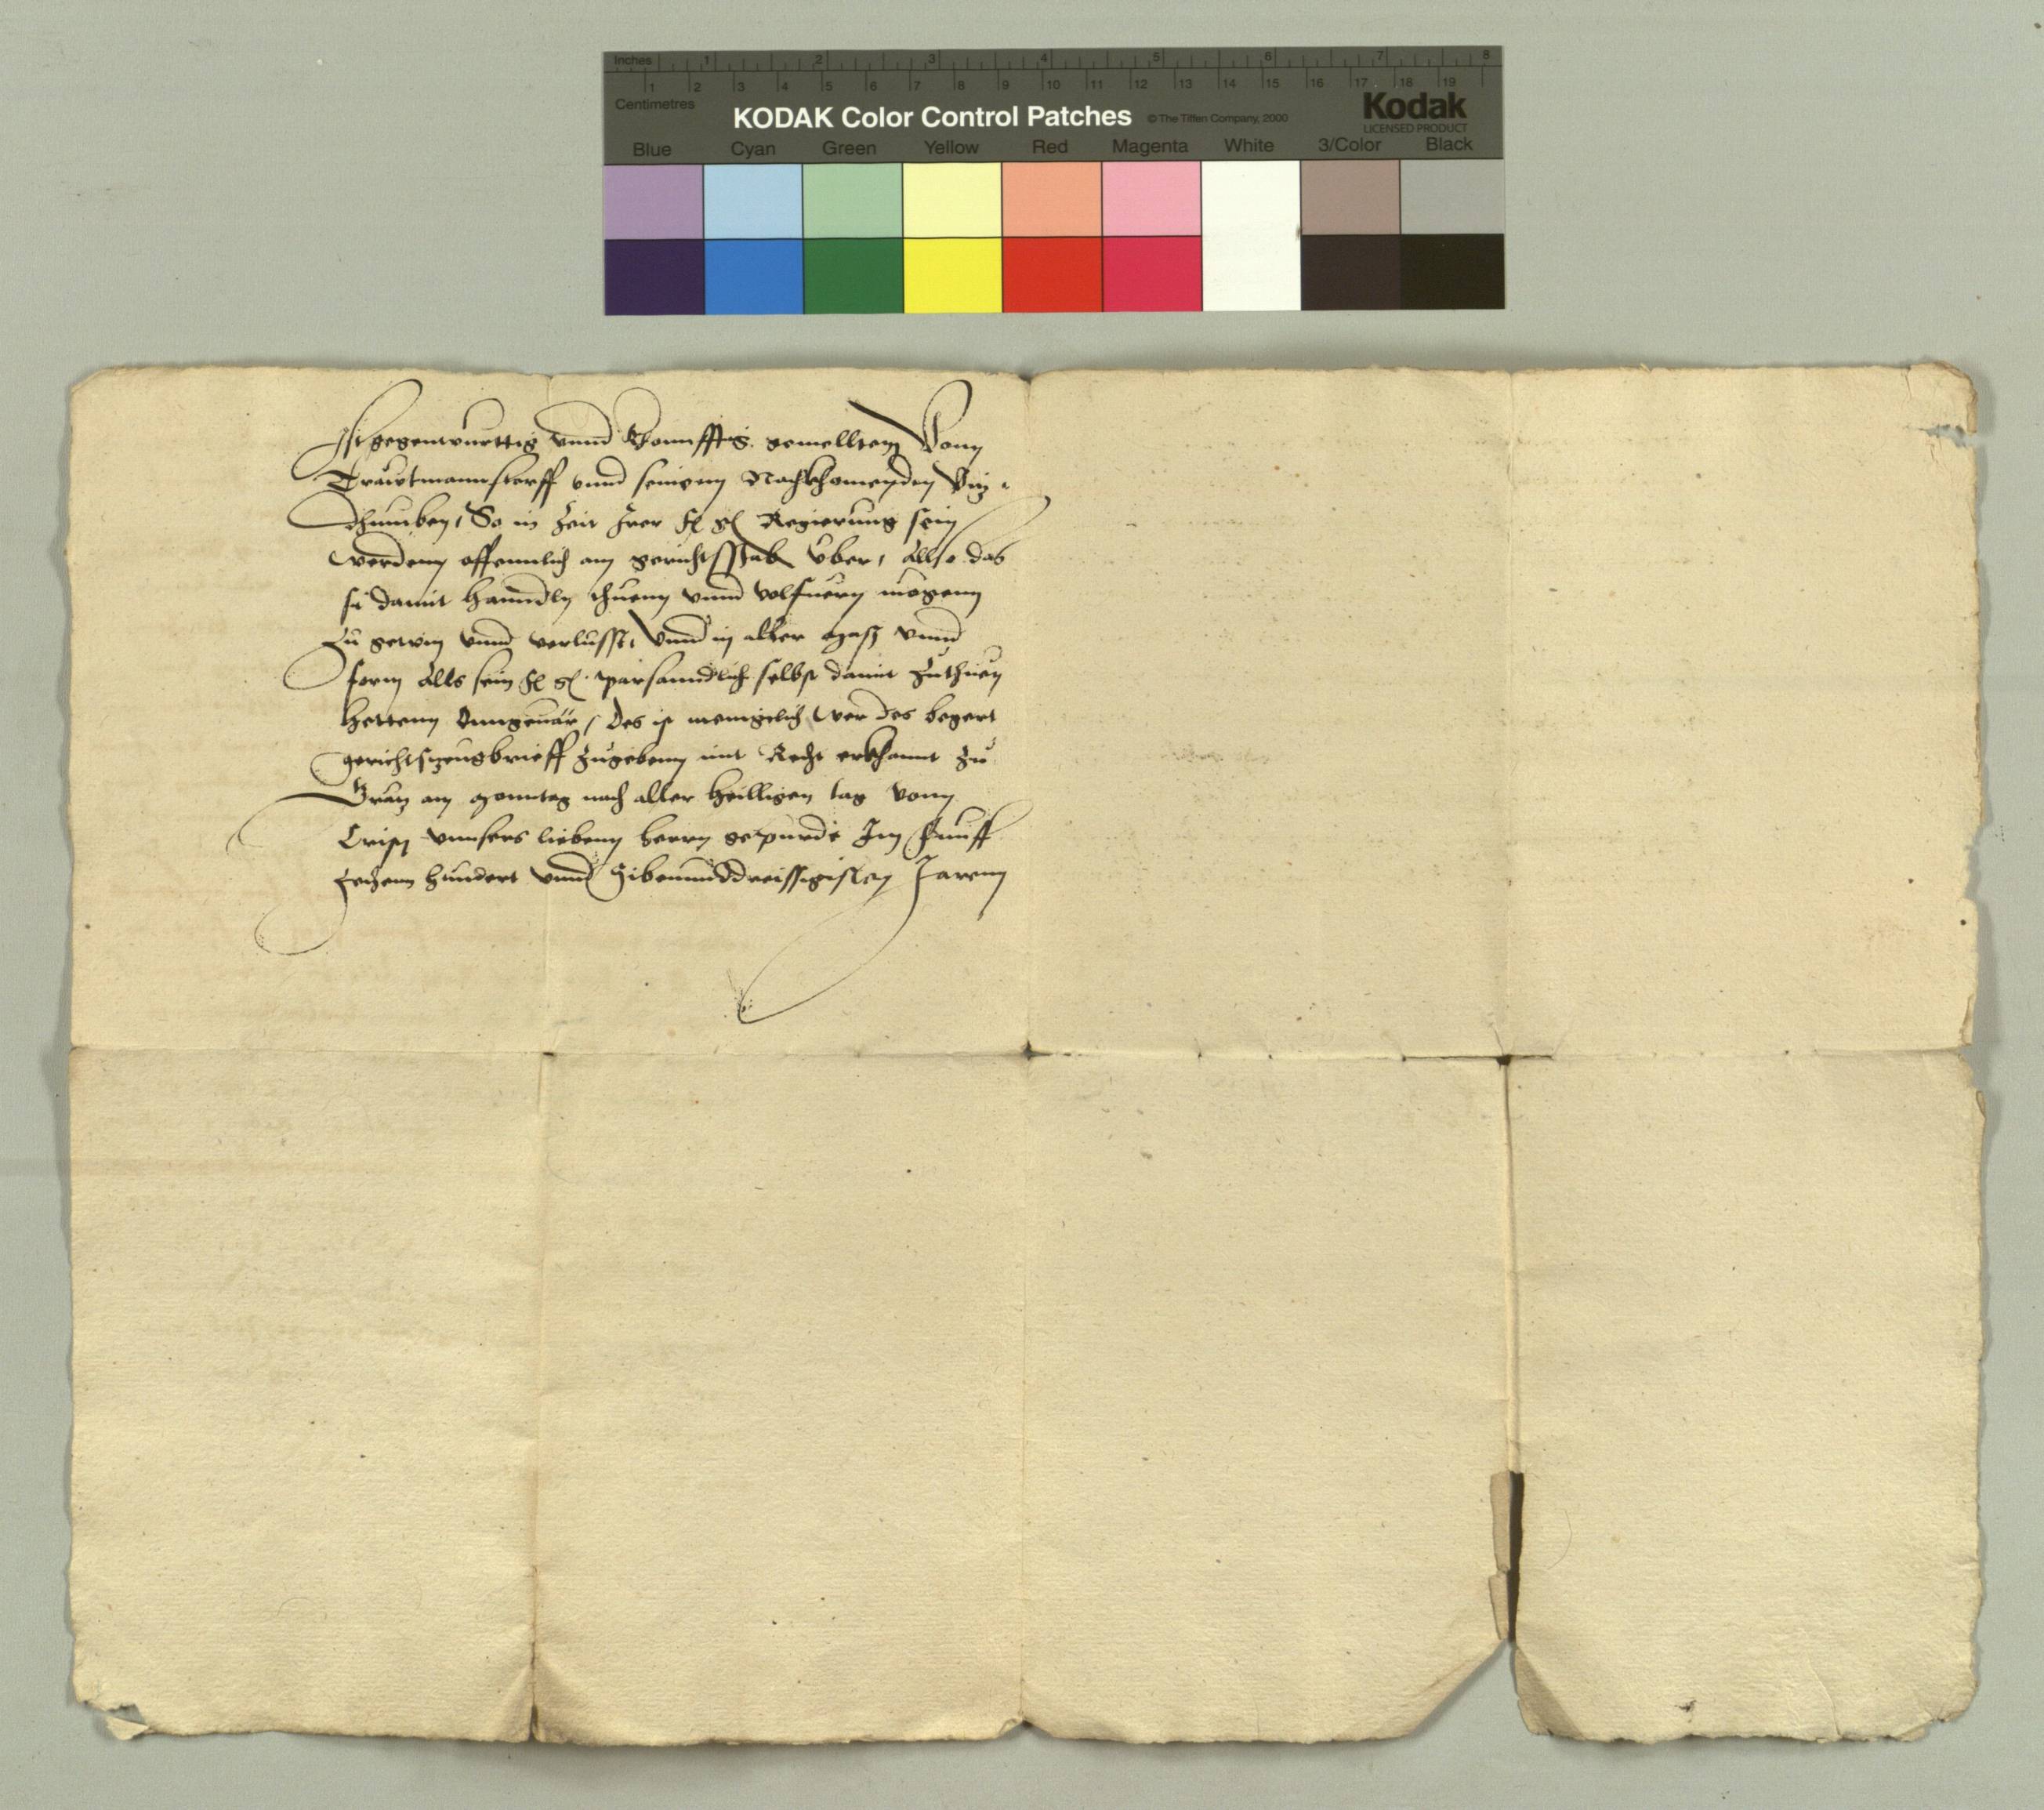 Inches 1 2 3 4 5 6 7 8
1 2 3 4 5 6 7 8 9 10 11 12 13 14 15 16 17 18 19
Centimetres
KODAK Color Control Patches © The Tiffen Company, 2000 Kodak
LICENSED PRODUCT
Blue Cyan Green Yellow Red Magenta White 3/Color Black
gegenwurttig vnnd khonnfftig gemelltem Vonn
Trawtmannstorff vnnd seinenn Nachkhomenden Viz
dhumben, So in Zeit Irer Regierung sein
werdenn offennlich am gerichtsstab vber, Allso das
sy damit hanndln thuenn vnnd volfuern mogenn
zu gewin vnnd verlusst, Vnnd in aller mass vnnd
form Alls sein parsanndlich selbst damit zuthuen
hettenn Anngeuär, Des ist menigclich wer des begert
gerichtszeugbrieff zugebenn mit Recht erkhannt zu
Gratz am Monntag nach aller heilligen tag vonn
Cristj vnnsers liebenn herrn gepurde Im Funff
zechenn hundert vnnd Sibenunddreissigisten Jarenn